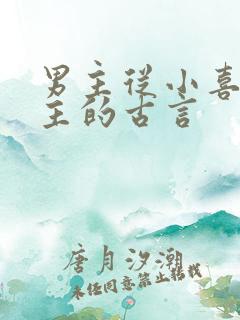 男主从小喜
主的古言
唐月汐潮
未经同意禁止转载